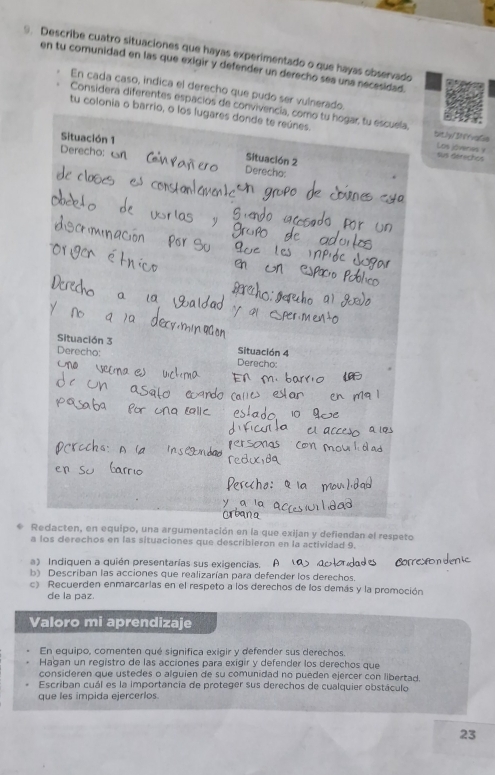 9. Describe cuatro situaciones que hayas experimentado o que hayas observado
en tu comunidad en las que exigir y defender un derecho sea una necesidad.
• En cada caso, indica el derecho que pudo ser vulnerado.
• Considera diferentes espacios de convivencia, como tu hogar, tu escuela,
tu colonia o barrio, o los lugares donde te reúnes.
Los jóvenes y
sus derechos
Situación 1
Derecho: un conpañero
de clases es constantemente
obgeto de vurlas y
discriminación por su
origen étnico
Derecho a la igualdad
y no a la decriminacion
Situación 2
Derecho:
un grupo de jovines esta
siendo acosado por un
grupo de adultos
que les inpide Jugar
en un espacio Publico
derecho: derecho al
y al
Situación 3
Derecho:
una vecina es victima
de un asalo cuando
pasaba por una calle
Derecho: A la inseguridad
en su barrio
Situación 4
Derecho:
En mi barrio las
calles estan en mal
estado, lo que
dificulta el acceso a las
personas con movilidad
reducida
Derecho: a la movilidad
y a la accesivilidad
urbana
Redacten, en equipo, una argumentación en la que exijan y defiendan el respeto
a los derechos en las situaciones que describieron en la actividad 9.
a) Indiquen a quién presentarías sus exigencias. A las autoridades correspondente
b) Describan las acciones que realizarían para defender los derechos.
c) Recuerden enmarcarlas en el respeto a los derechos de los demás y la promoción
de la paz.
Valoro mi aprendizaje
• En equipo, comenten qué significa exigir y defender sus derechos.
• Hagan un registro de las acciones para exigir y defender los derechos que
consideren que ustedes o alguien de su comunidad no pueden ejercer con libertad.
• Escriban cuál es la importancia de proteger sus derechos de cualquier obstáculo
que les impida ejercerlos.
23